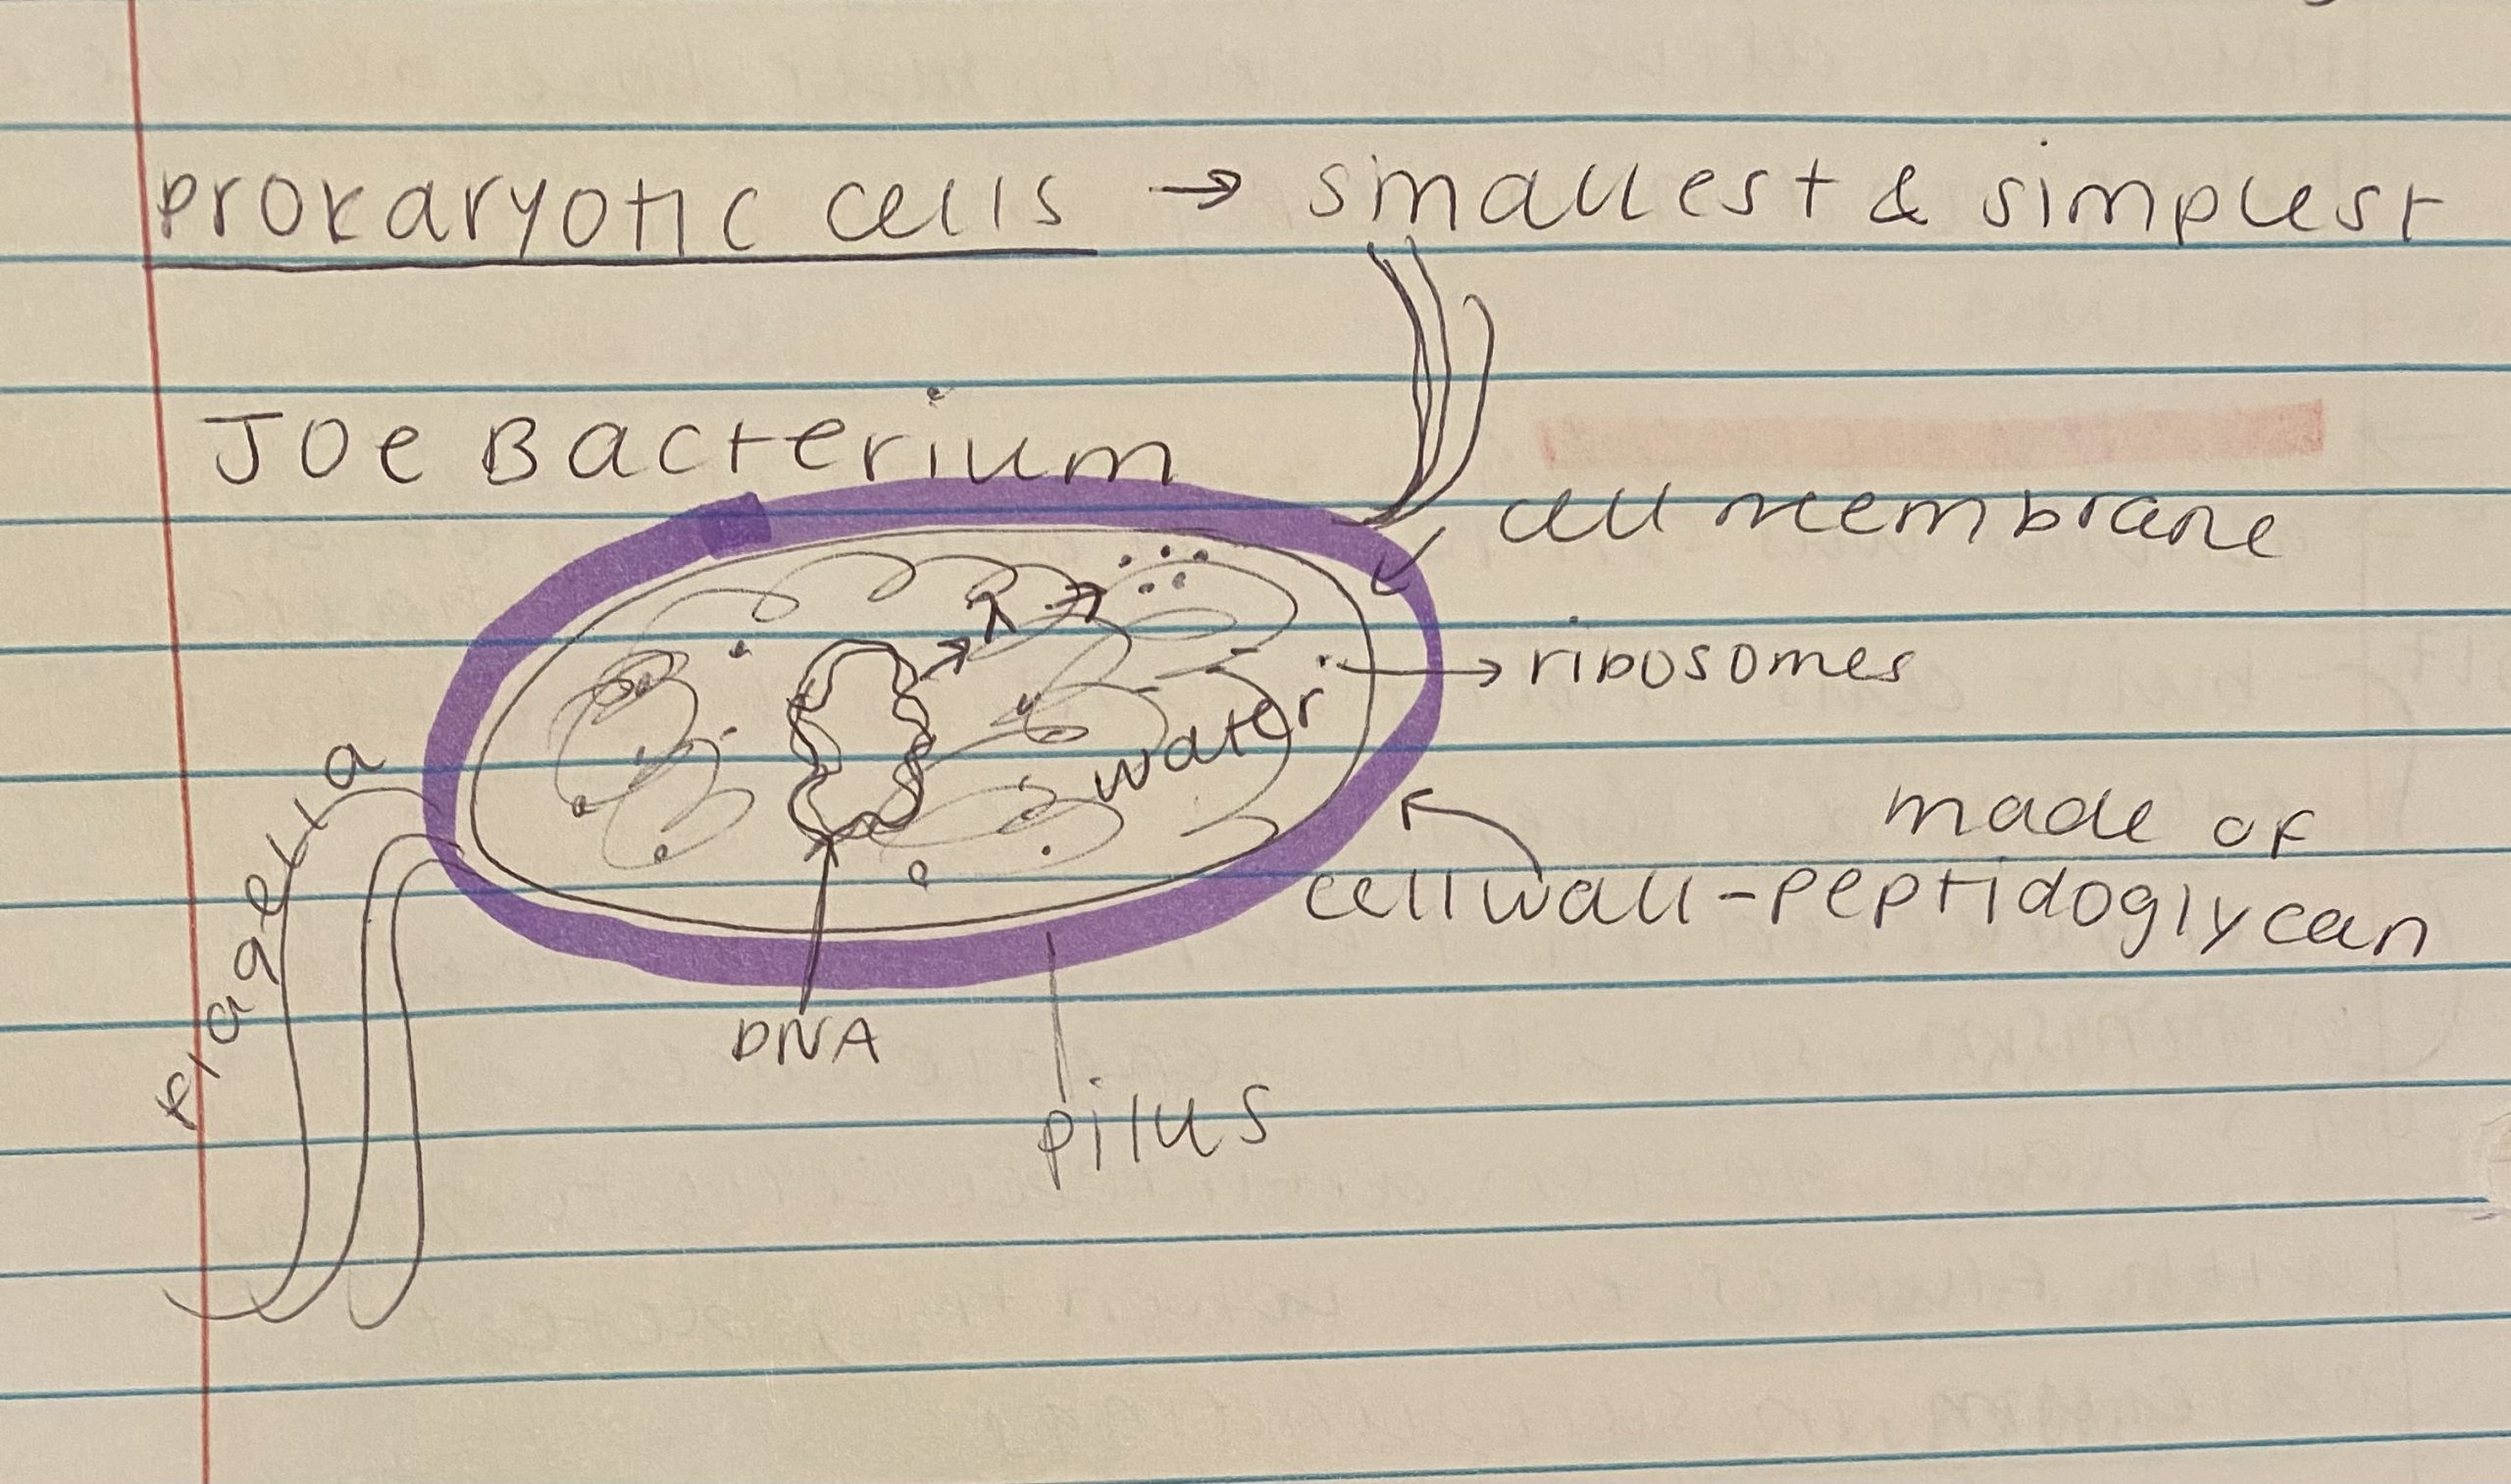 prokaryotic cells → smallest & simplest
Joe Bacterium
cell membrane
ribosomes
water
flagella
made of
cell wall - peptidoglycan
DNA
pilus